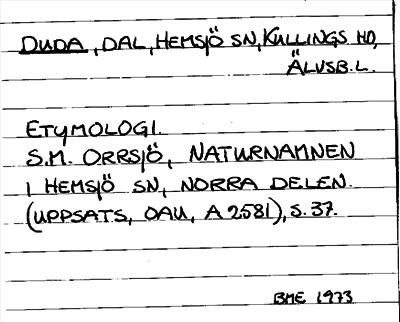 DUDA, DAL, HEMSJÖ SN, KULLINGS HD,
ÄLVSB.L.
ETYMOLOGI.
S.M. ORRSJÖ, NATURNAMNEN
I HEMSJÖ SN, NORRA DELEN.
(UPPSATS, OAU, A 2581), S. 37.
BME 1973